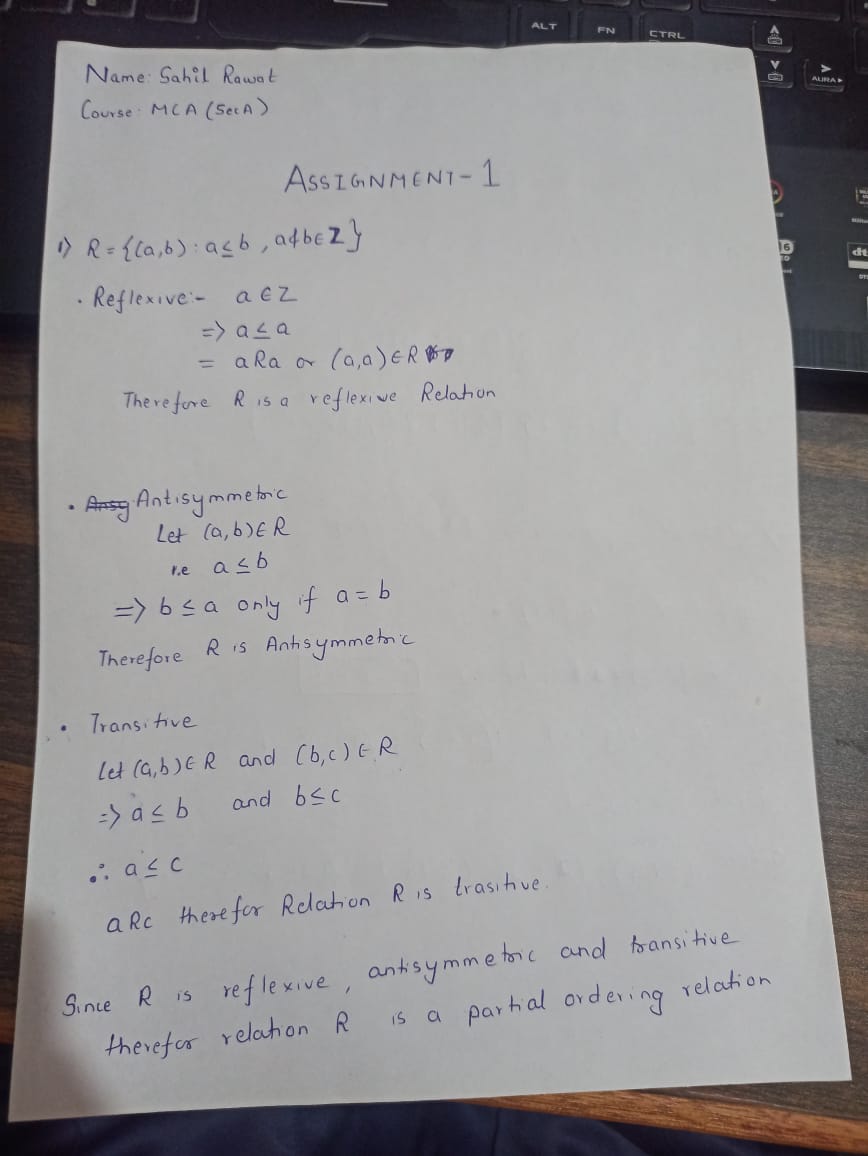 ALT FN CTRL
AURA
Name: Sahil Rawat
Course: MCA (Sec A)
ASSIGNMENT-1
1) R = {(a,b) : a ≤ b , a & b ∈ Z}
• Reflexive:- a ∈ Z
=> a ≤ a
= aRa or (a,a) ∈ R
Therefore R is a reflexive Relation
• Antisymmetric
Let (a,b) ∈ R
i.e a ≤ b
=> b ≤ a only if a = b
Therefore R is Antisymmetric
• Transitive
Let (a,b) ∈ R and (b,c) ∈ R
=> a ≤ b and b ≤ c
∴ a ≤ c
aRc therefor Relation R is trasitive.
Since R is reflexive, antisymmetric and transitive
therefor relation R is a partial ordering relation